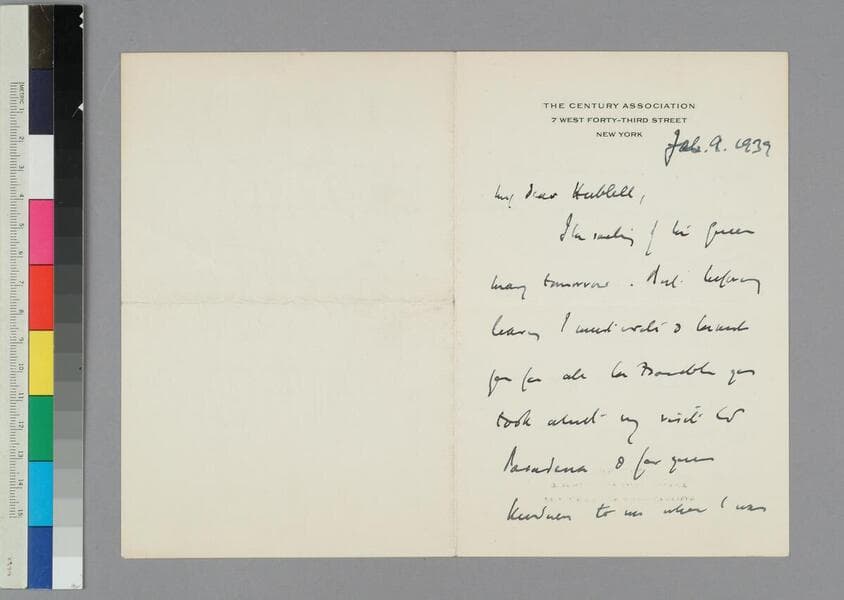 THE CENTURY ASSOCIATION
7 WEST FORTY-THIRD STREET
NEW YORK
Feb. 9. 1939
My dear Hubble,
I'm sailing the Queen
Mary tomorrow. But before
leaving I must write & thank
you for all the trouble you
took about my visit to
Pasadena & for your
kindness to me when I was